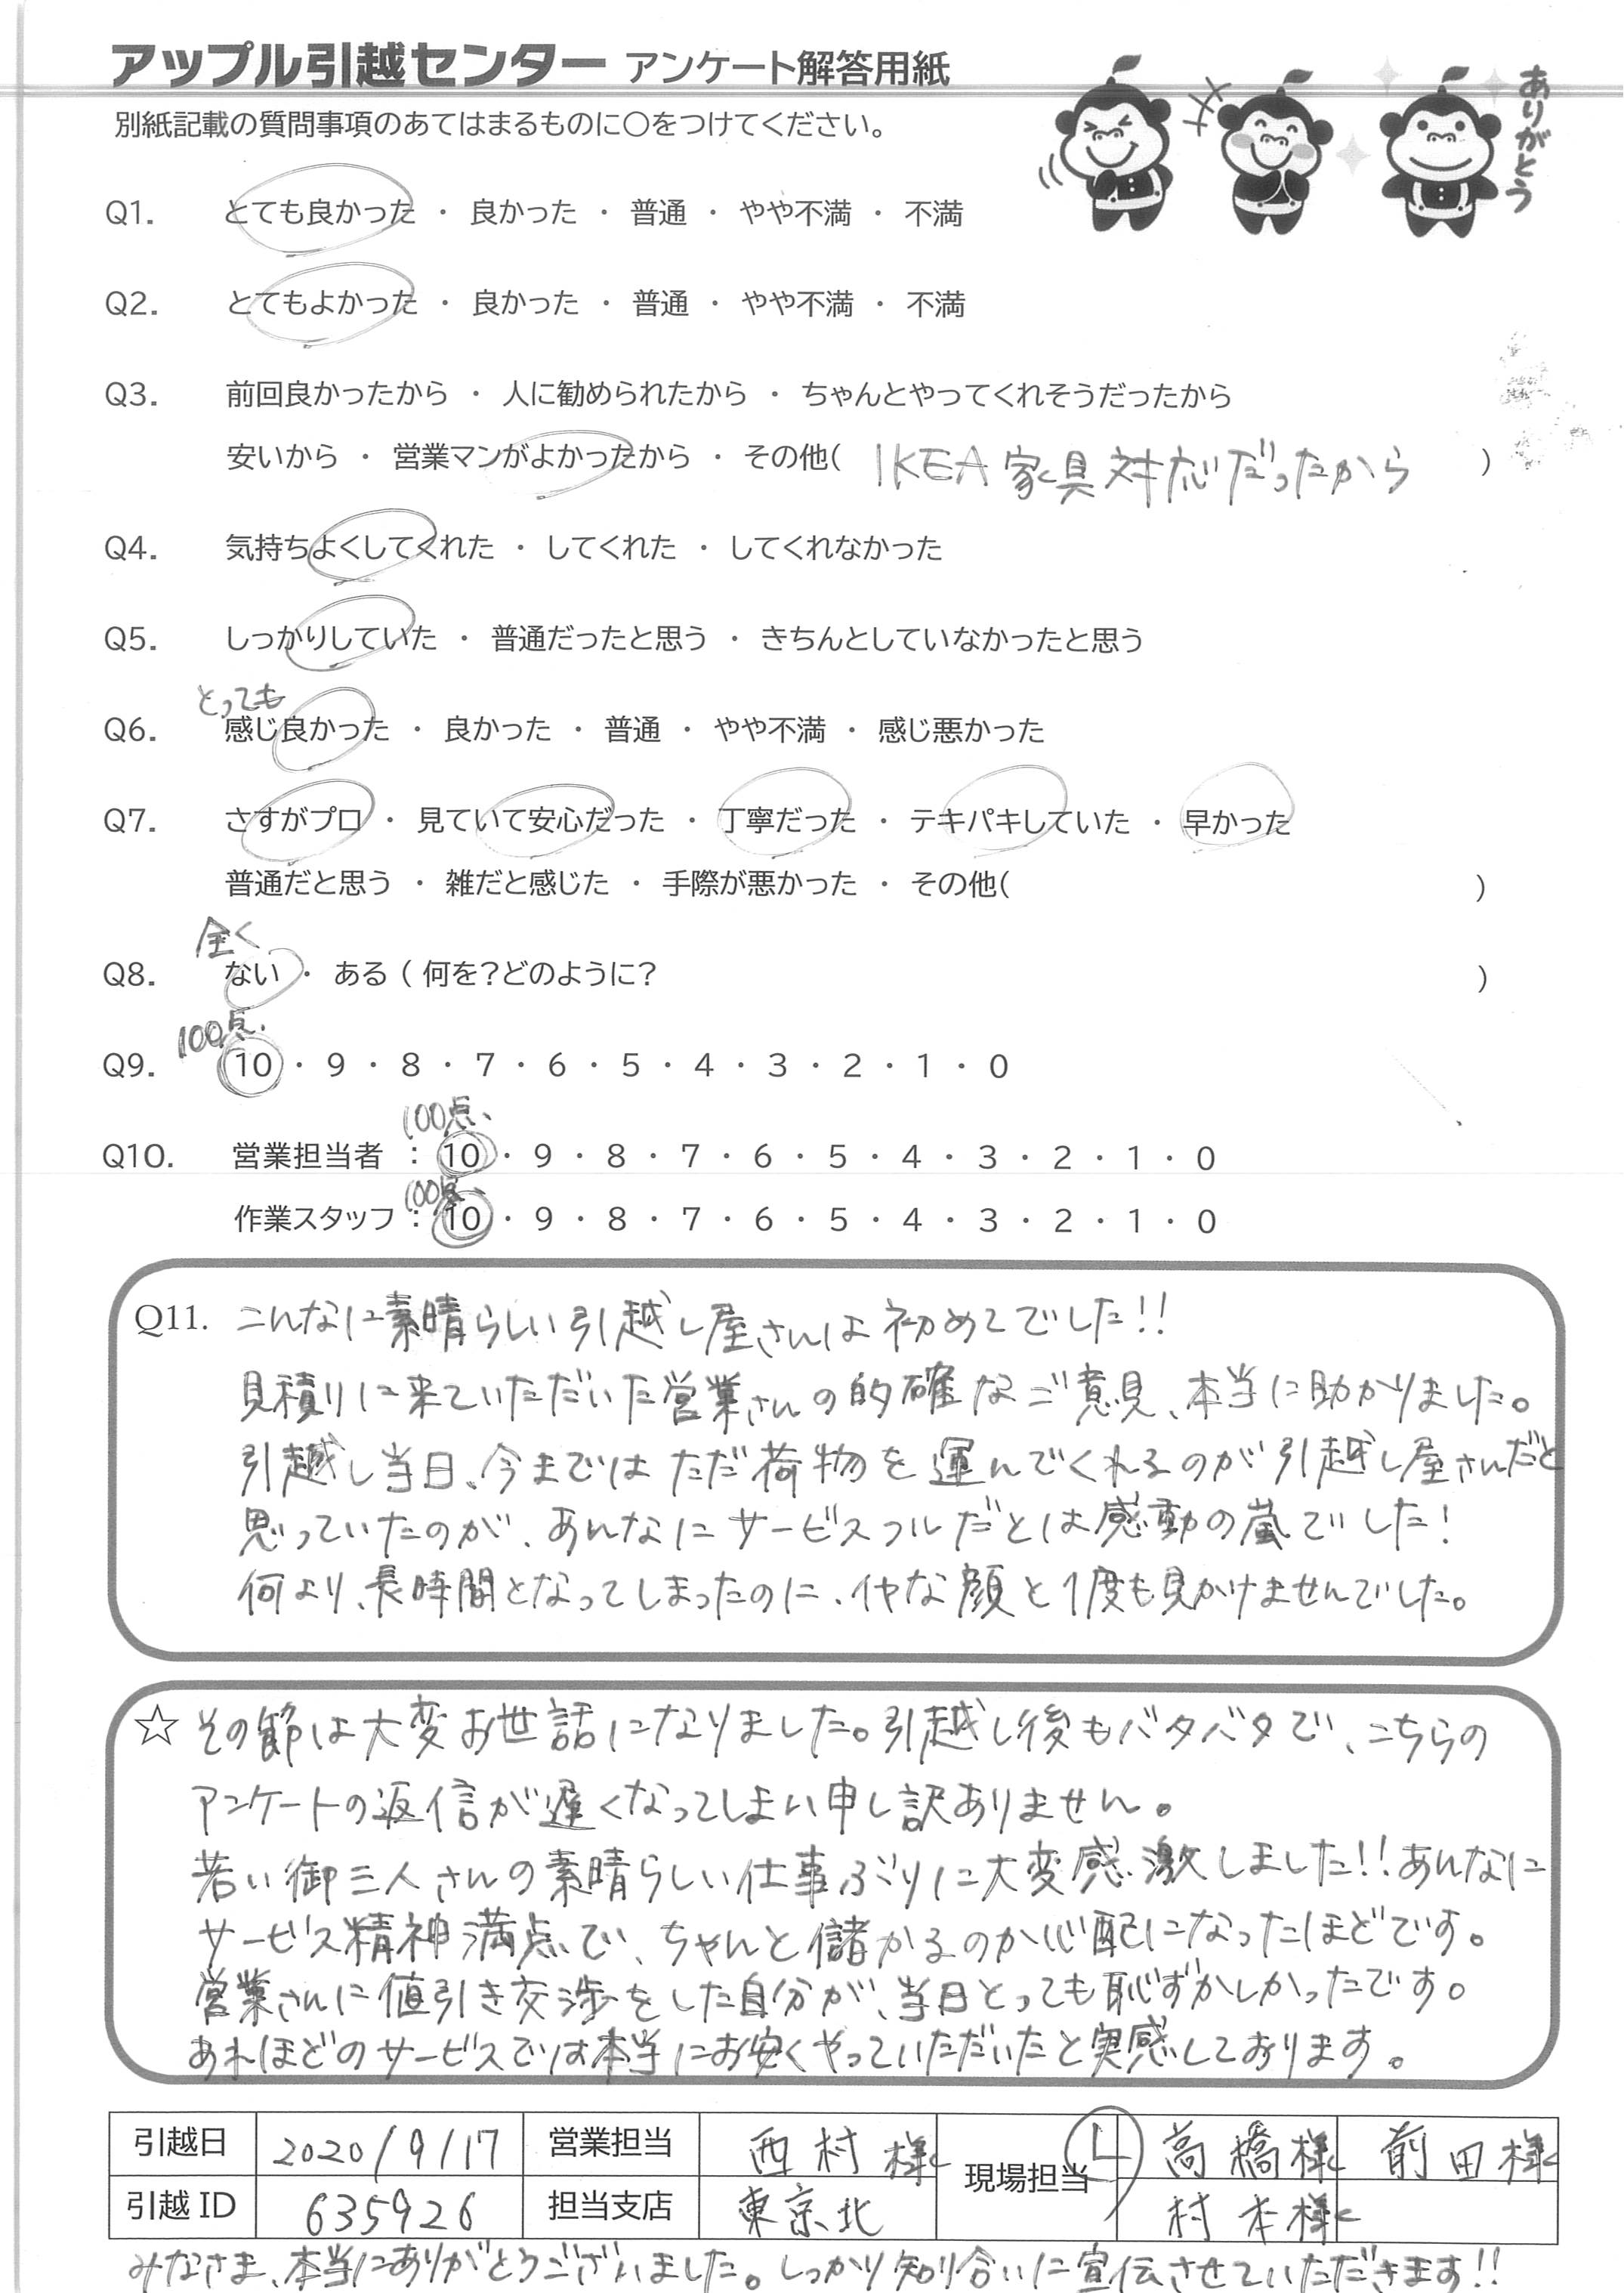 アップル引越センター アンケート解答用紙
ありがとう
別紙記載の質問事項のあてはまるものに○をつけてください。
Q1. とても良かった ・ 良かった ・ 普通 ・ やや不満 ・ 不満
Q2. とてもよかった ・ 良かった ・ 普通 ・ やや不満 ・ 不満
Q3. 前回良かったから ・ 人に勧められたから ・ ちゃんとやってくれそうだったから
安いから ・ 営業マンがよかったから ・ その他( IKEA家具対応だったから )
Q4. 気持ちよくしてくれた ・ してくれた ・ してくれなかった
Q5. しっかりしていた ・ 普通だったと思う ・ きちんとしていなかったと思う
とっても
Q6. 感じ良かった ・ 良かった ・ 普通 ・ やや不満 ・ 感じ悪かった
Q7. さすがプロ ・ 見ていて安心だった ・ 丁寧だった ・ テキパキしていた ・ 早かった
普通だと思う ・ 雑だと感じた ・ 手際が悪かった ・ その他( )
全く
Q8. ない ・ ある ( 何を?どのように? )
100点.
Q9. 10 ・ 9 ・ 8 ・ 7 ・ 6 ・ 5 ・ 4 ・ 3 ・ 2 ・ 1 ・ 0
100点、
Q10. 営業担当者 : 10 ・ 9 ・ 8 ・ 7 ・ 6 ・ 5 ・ 4 ・ 3 ・ 2 ・ 1 ・ 0
100点、
作業スタッフ : 10 ・ 9 ・ 8 ・ 7 ・ 6 ・ 5 ・ 4 ・ 3 ・ 2 ・ 1 ・ 0
Q11. こんなに素晴らしい引越し屋さんは初めてでした!!
見積りに来ていただいた営業さんの的確なご意見、本当に助かりました。
引越し当日、今まではただ荷物を運んでくれるのが引越し屋さんだと
思っていたのが、あんなにサービスフルだとは感動の嵐でした!
何より、長時間となってしまったのに、イヤな顔と1度も見かけませんでした。
☆ その節は大変お世話になりました。引越し後もバタバタで、こちらの
アンケートの返信が遅くなってしまい申し訳ありません。
若い御三人さんの素晴らしい仕事ぶりに大変感激しました!!あんなに
サービス精神満点で、ちゃんと儲かるのか心配になったほどです。
営業さんに値引き交渉をした自分が、当日とっても恥ずかしかったです。
あれほどのサービスでは本当にお安くやっていただいたと実感しております。
引越日 2020/9/17 営業担当 西村様 現場担当 L 高橋様 前田様
引越ID 635926 担当支店 東京北 村本様
みなさま、本当にありがとうございました。しっかり知り合いに宣伝させていただきます!!